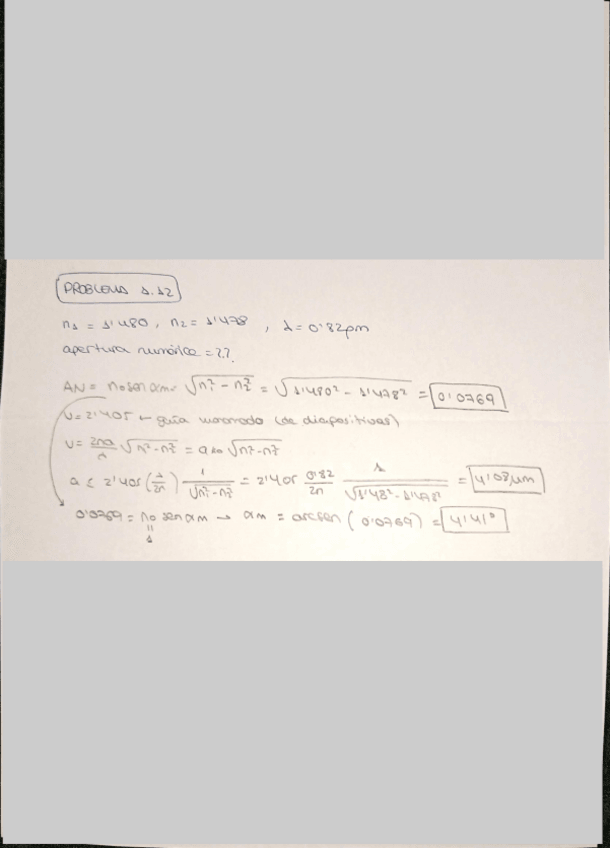 PROBLEMA 1.12
n1 = 1'480, n2 = 1'478, λ = 0'82μm
apertura numérica = ??
AN = no sen αm = √n1² - n2² = √1'480² - 1'478² = 0'0769
V = 2'405 ← guía monomodo (de diapositivas)
V = 2πa/λ √n1² - n2² = a k0 √n1² - n2²
a ≤ 2'405 (λ/2π) 1/√n1² - n2² = 2'405 0'82/2π 1/√1'48² - 1'478² = 4'08μm
0'0769 = no sen αm → αm = arcsen (0'0769) = 4'41°
"
1